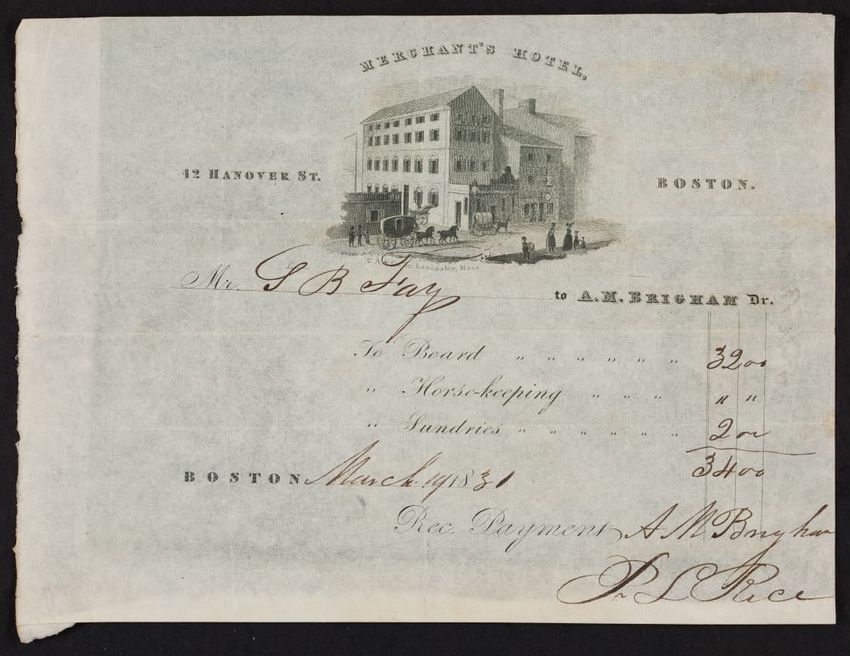 MERCHANT'S HOTEL,
42 HANOVER ST.
BOSTON.
Lancaster, Mass.
Mr. S B Fay
to A.M. BRIGHAM Dr.
To Board " " " " " " 32 00
" Horse-keeping " " " " " "
" Sundries " " " " " " 2 00
34 00
BOSTON March 19 1831
Rec. Payment A M Brigham
Pr L Rice